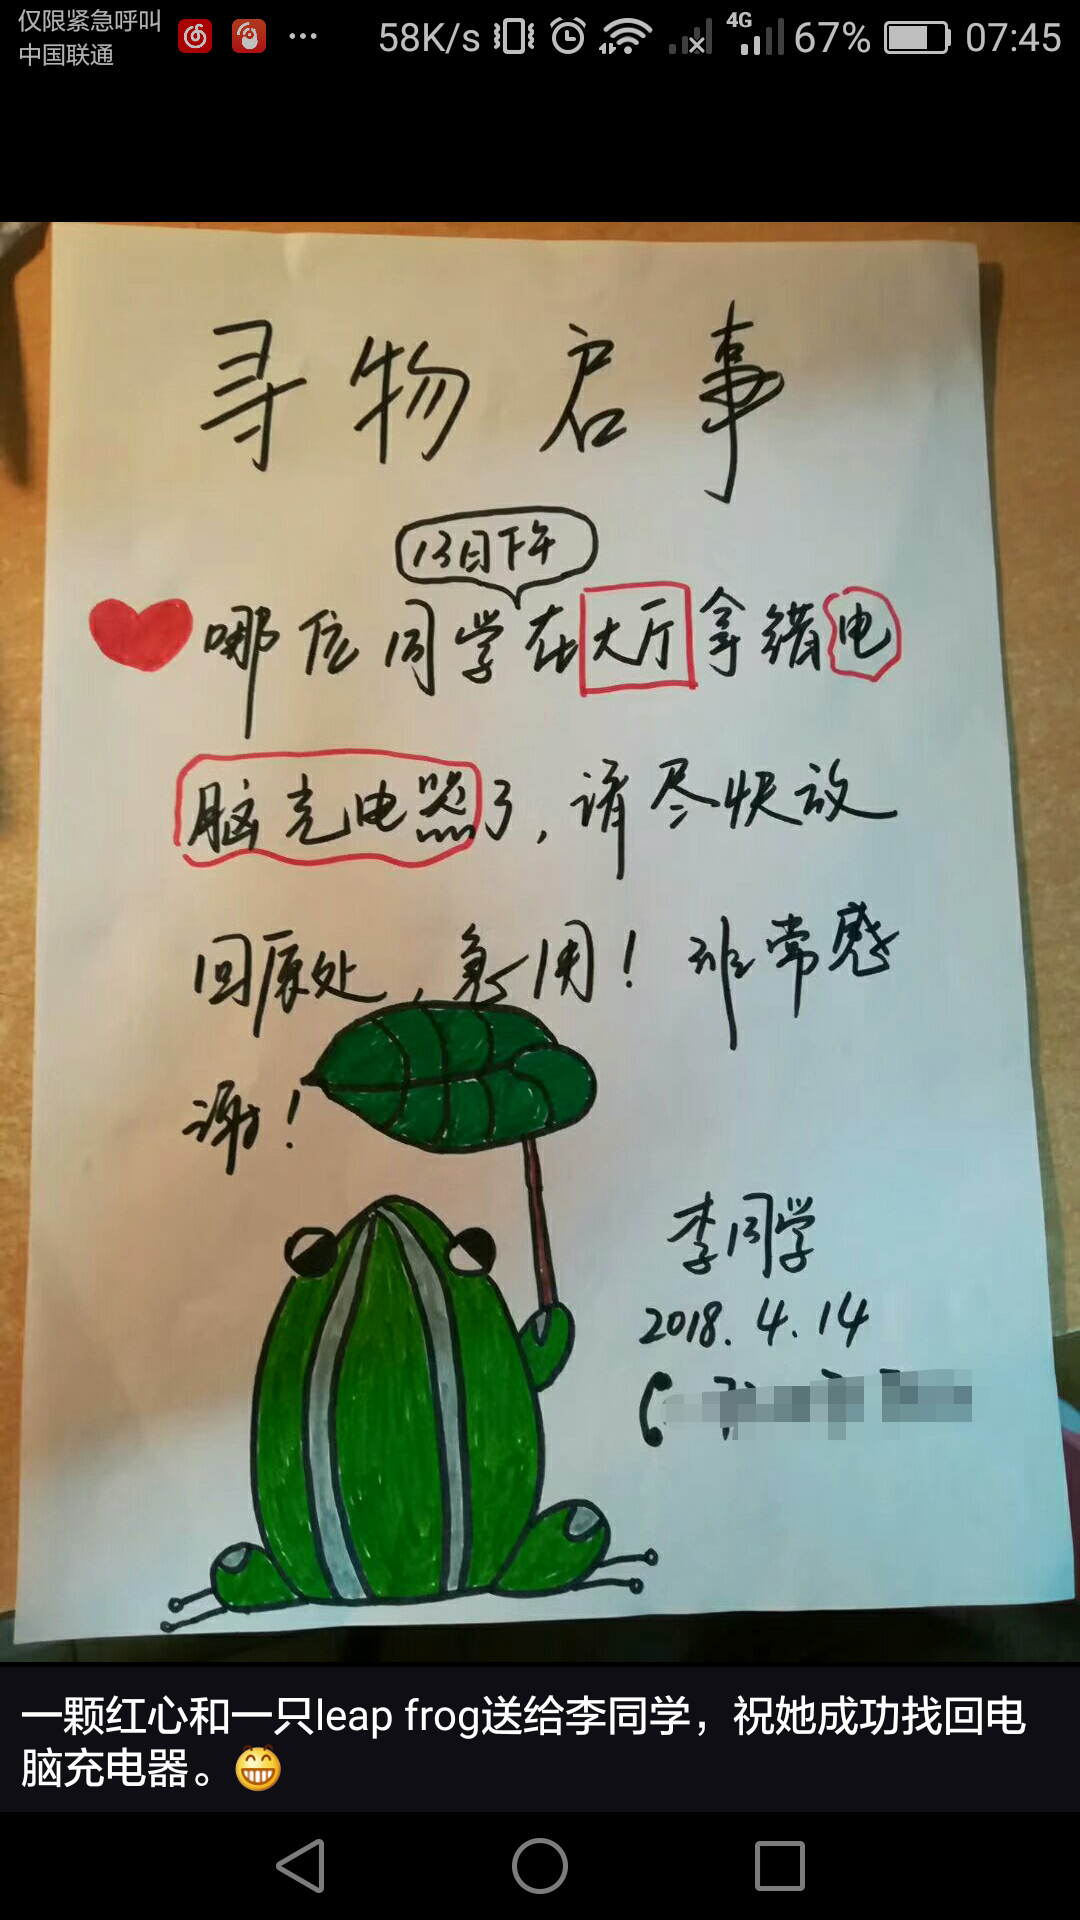 仅限紧急呼叫
中国联通
58K/s
4G
67%
07:45
寻物启事
13日下午
哪位同学在大厅拿错电
脑充电器了,请尽快放
回原处,急用!非常感
谢!
李同学
2018.4.14
一颗红心和一只leap frog送给李同学，祝她成功找回电
脑充电器。